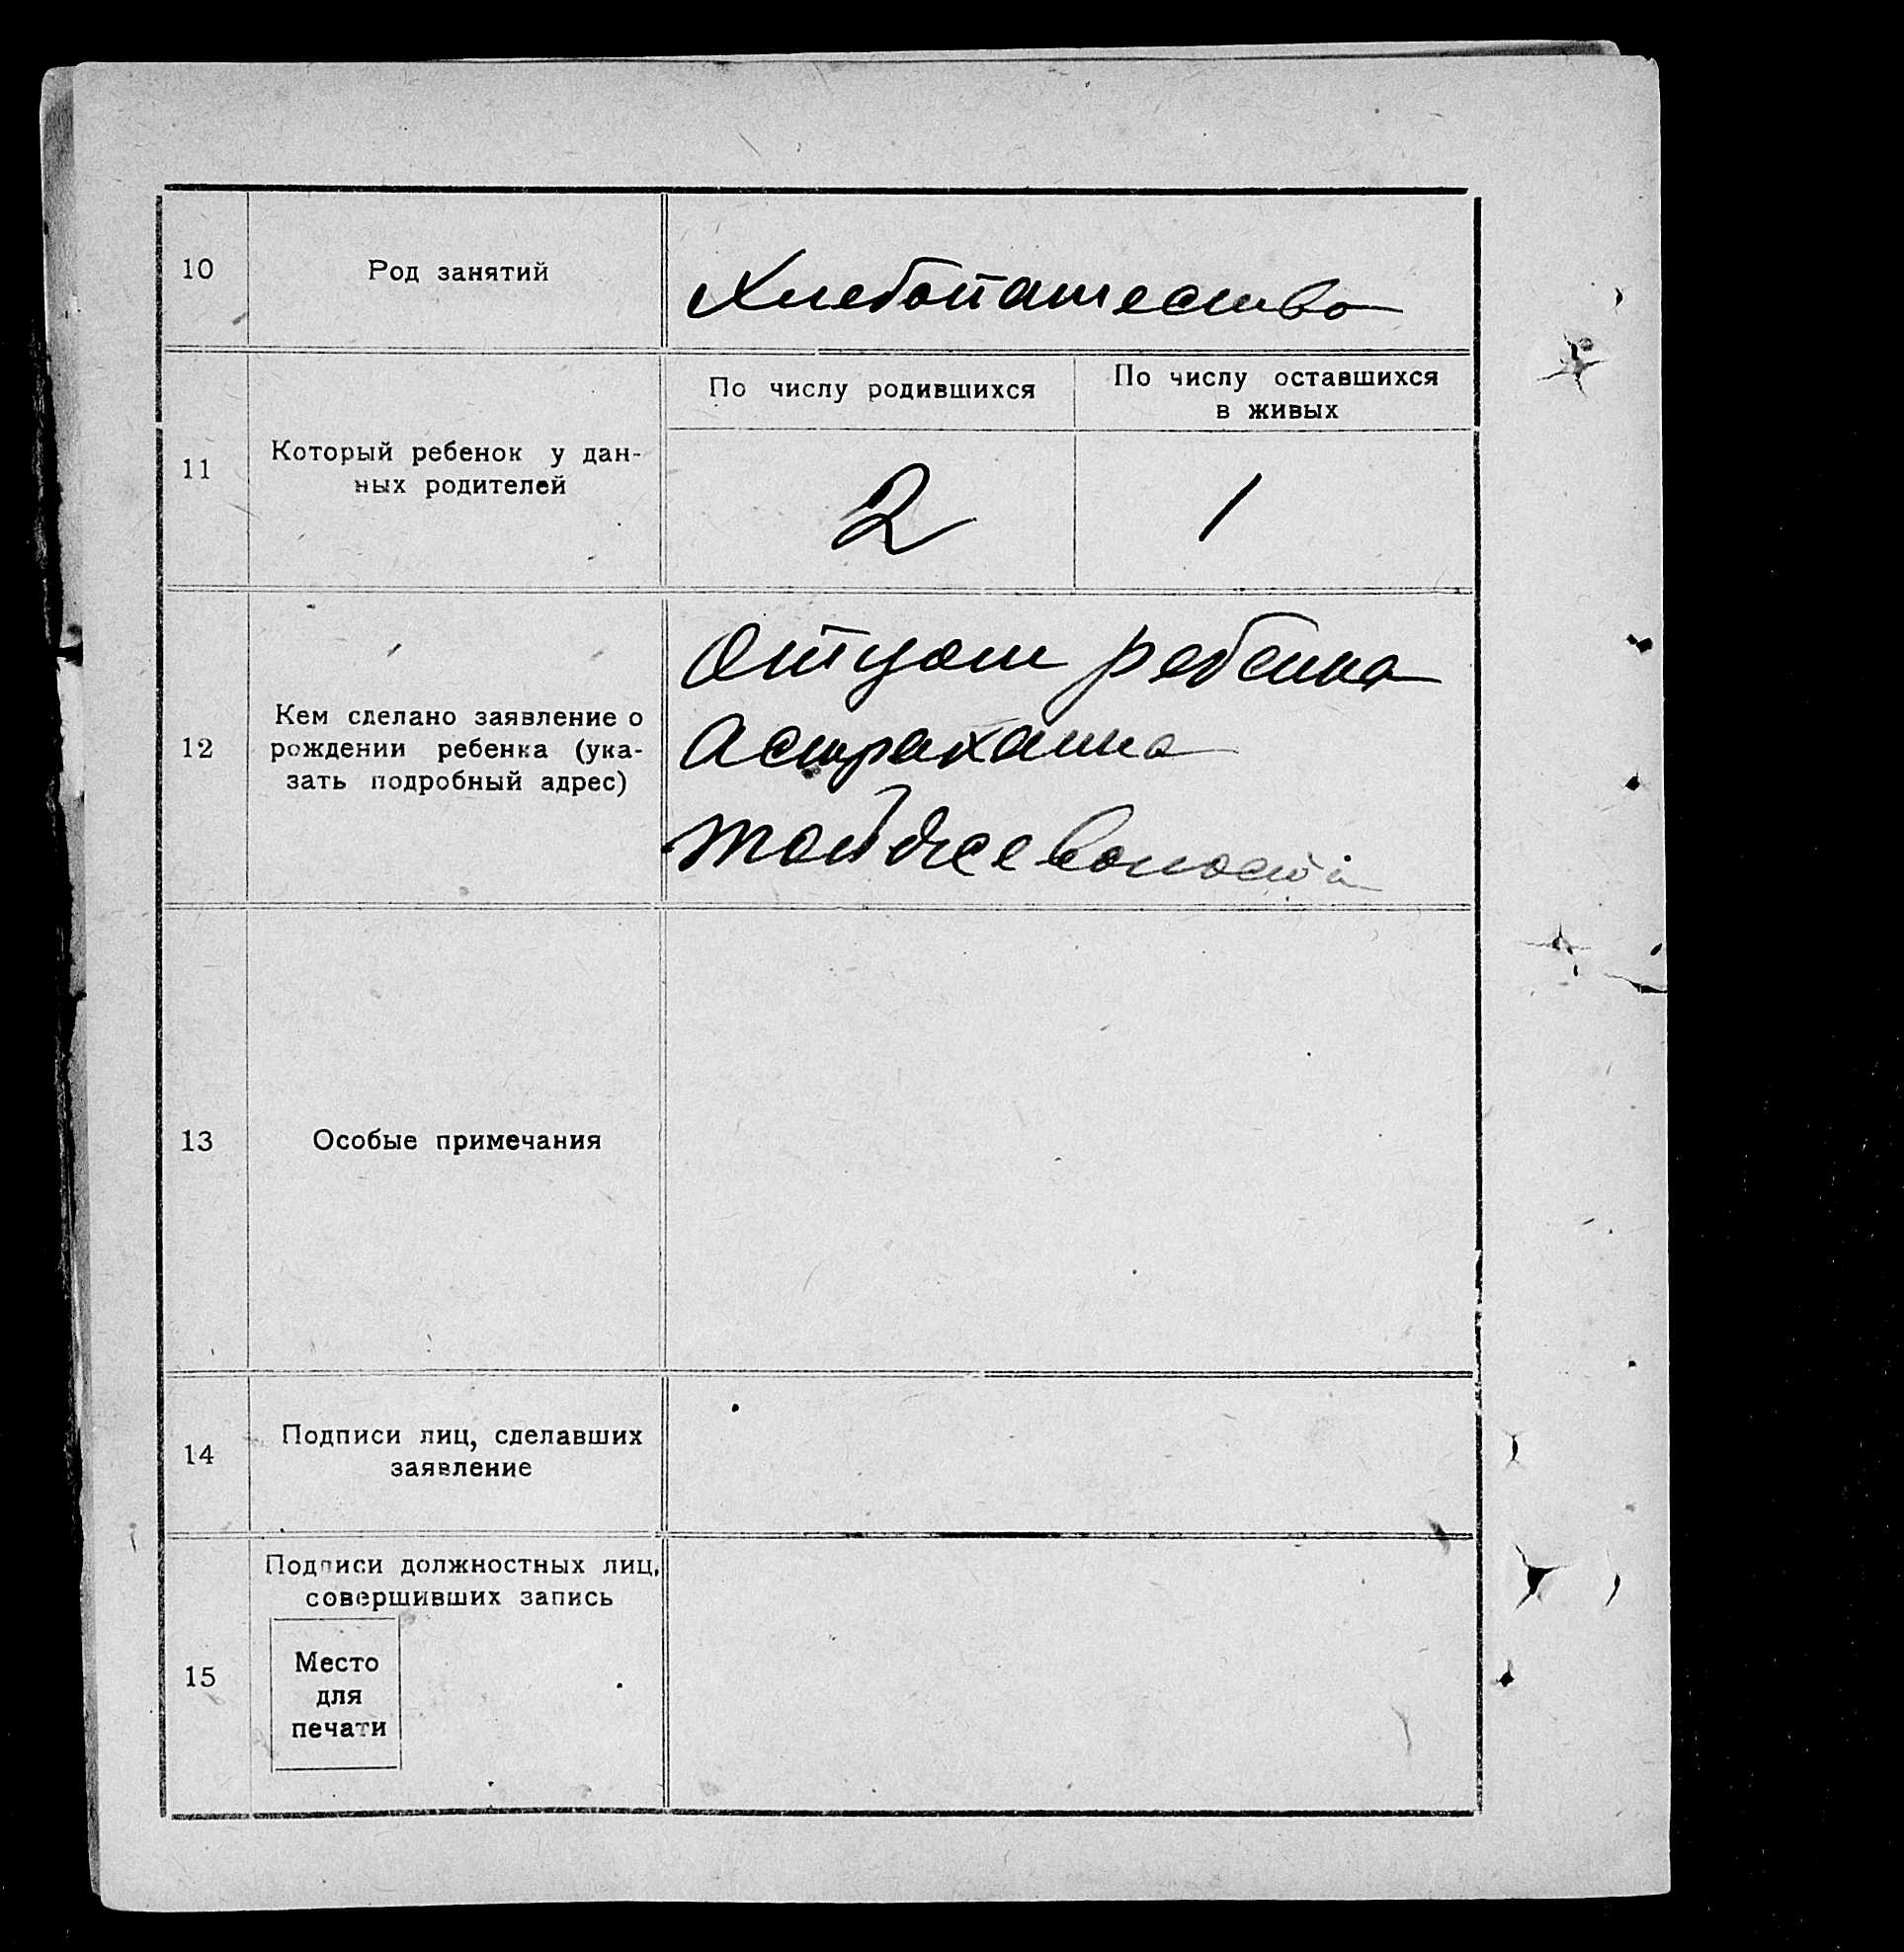 10
Род занятий
Хлебопашество
11
Который ребенок у дан-
ных родителей
По числу родившихся
По числу оставшихся
в живых
2
1
12
Кем сделано заявление о
рождении ребенка (ука-
зать подробный адрес)
Отцом ребенка
Астраханка
Той же волости
13
Особые примечания
14
Подписи лиц, сделавших
заявление
15
Подписи должностных лиц,
совершивших запись
Место
для
печати